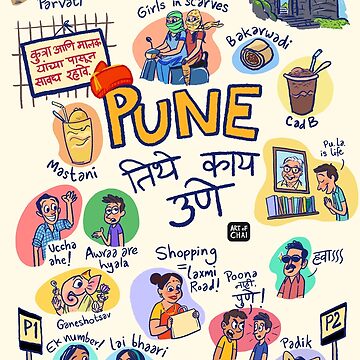 Parvati
Girls in scarves
Bakarwadi
कुत्रा आणि मालक
यांच्या पासून
सावध रहावे.
PUNE
CadB
Mastani
तिथे काय
उणे
Pu. La.
is life
Uccha
ahe!
Awraa are
hyala
ART OF
CHAI
Shopping
= laxmi
Road!
Poona
नाही,
पुणे!
Ganeshotsav
P1
P2
Ek number!
lai bhaari
Padik